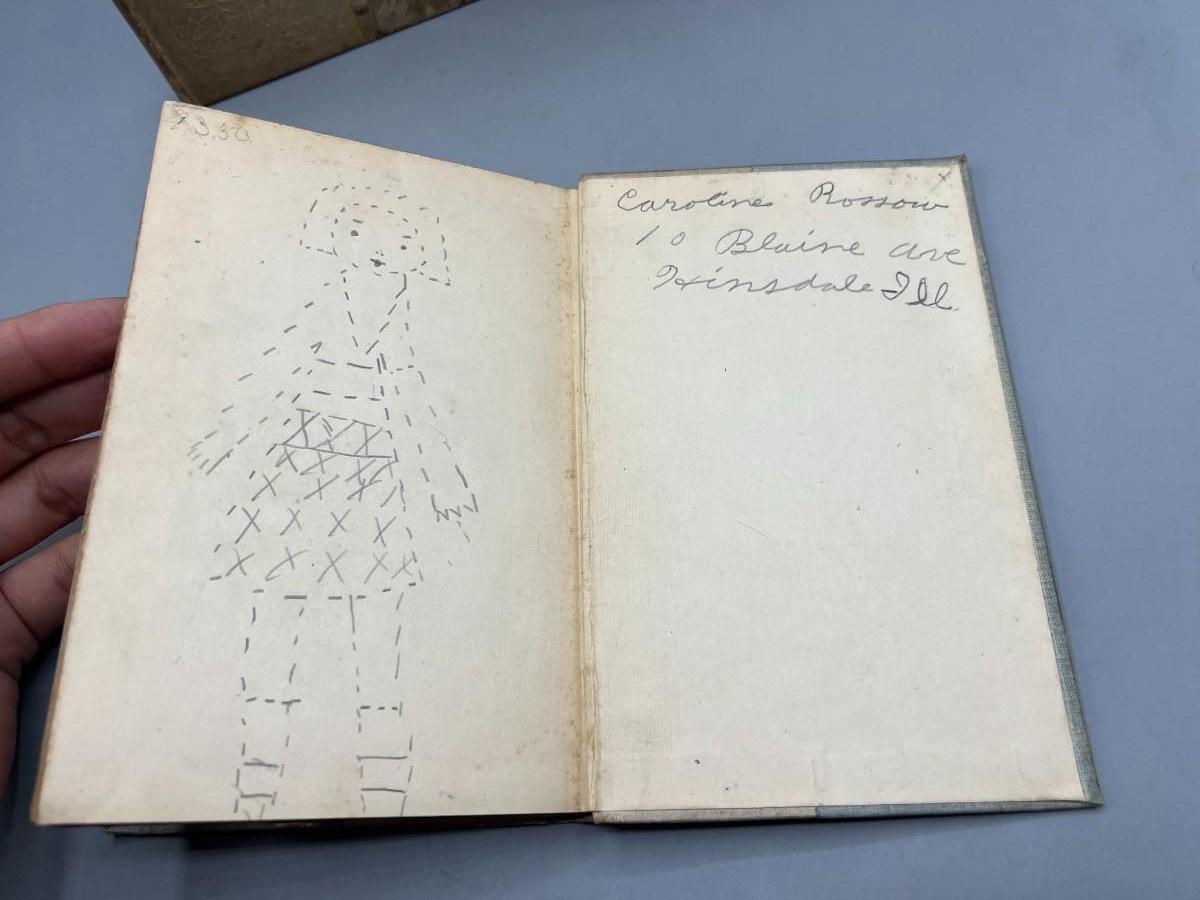 3,30
Caroline Rossow
10 Blaine Ave
Hinsdale Ill.